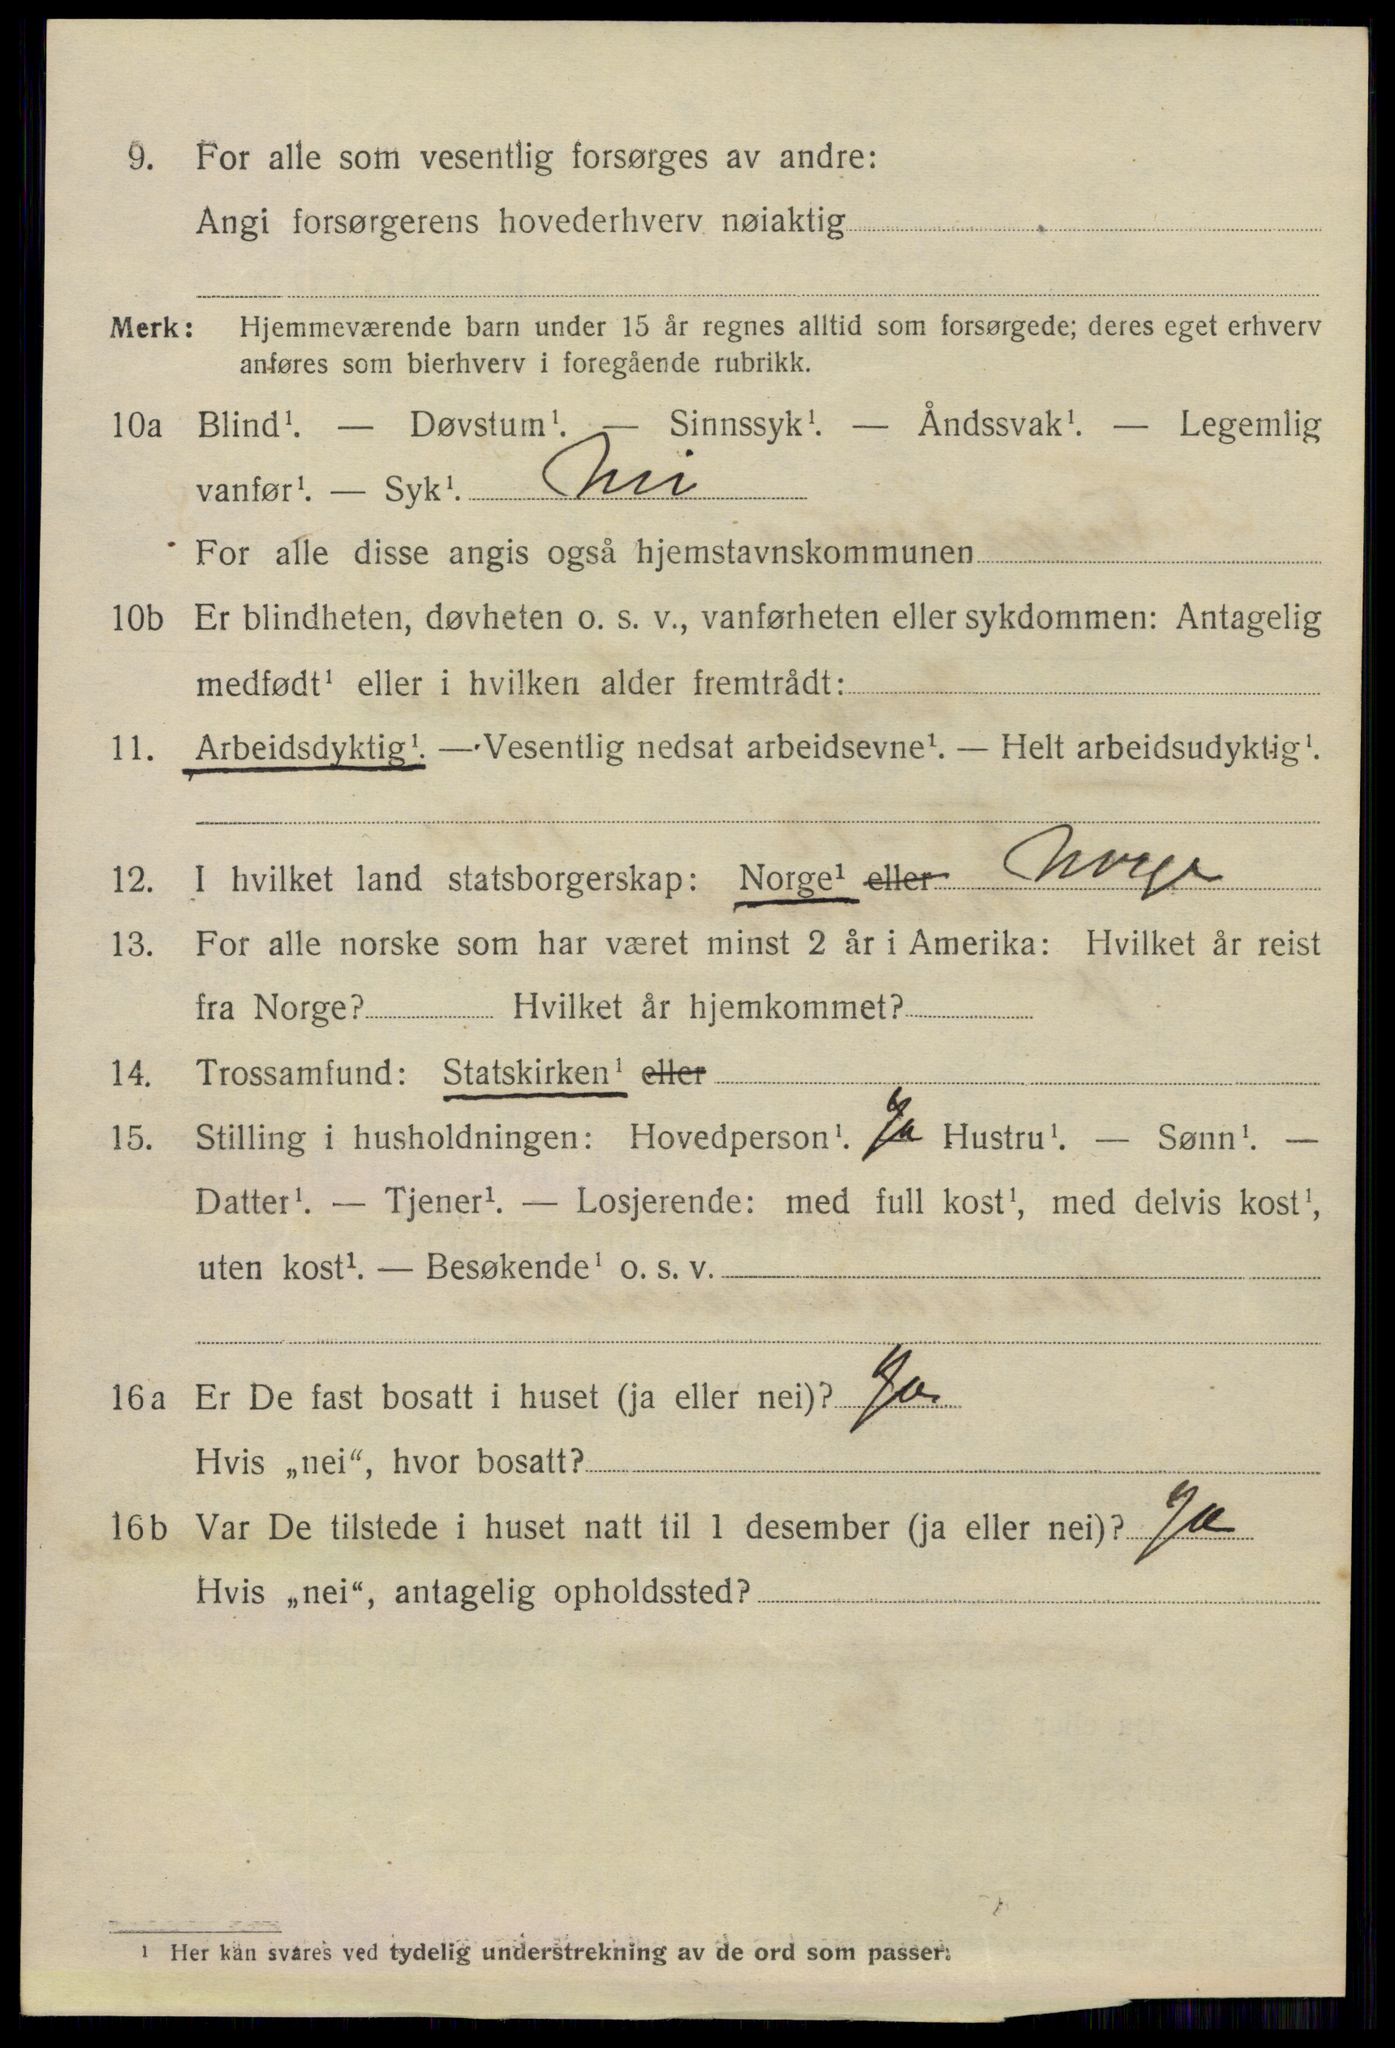 9. For alle som vesentlig forsørges av andre:
Angi forsørgerens hovederhverv nøiaktig
Merk: Hjemmeværende barn under 15 år regnes alltid som forsørgede; deres eget erhverv
anføres som bierhverv i foregående rubrikk.
10a Blind¹. — Døvstum¹. — Sinnssyk¹. — Åndssvak¹. — Legemlig
vanfør¹. — Syk¹. Nei
For alle disse angis også hjemstavnskommunen
10b Er blindheten, døvheten o. s. v., vanførheten eller sykdommen: Antagelig
medfødt¹ eller i hvilken alder fremtrådt:
11. Arbeidsdyktig¹. — Vesentlig nedsat arbeidsevne¹. — Helt arbeidsudyktig¹.
12. I hvilket land statsborgerskap: Norge¹ eller Norge
13. For alle norske som har været minst 2 år i Amerika: Hvilket år reist
fra Norge? Hvilket år hjemkommet?
14. Trossamfund: Statskirken¹ eller
15. Stilling i husholdningen: Hovedperson¹. Ja Hustru¹. — Sønn¹. —
Datter¹. — Tjener¹. — Losjerende: med full kost¹, med delvis kost¹,
uten kost¹. — Besøkende¹ o. s. v.
16a Er De fast bosatt i huset (ja eller nei)? Ja
Hvis „nei“, hvor bosatt?
16b Var De tilstede i huset natt til 1 desember (ja eller nei)? Ja
Hvis „nei“, antagelig opholdssted?
¹ Her kan svares ved tydelig understrekning av de ord som passer.